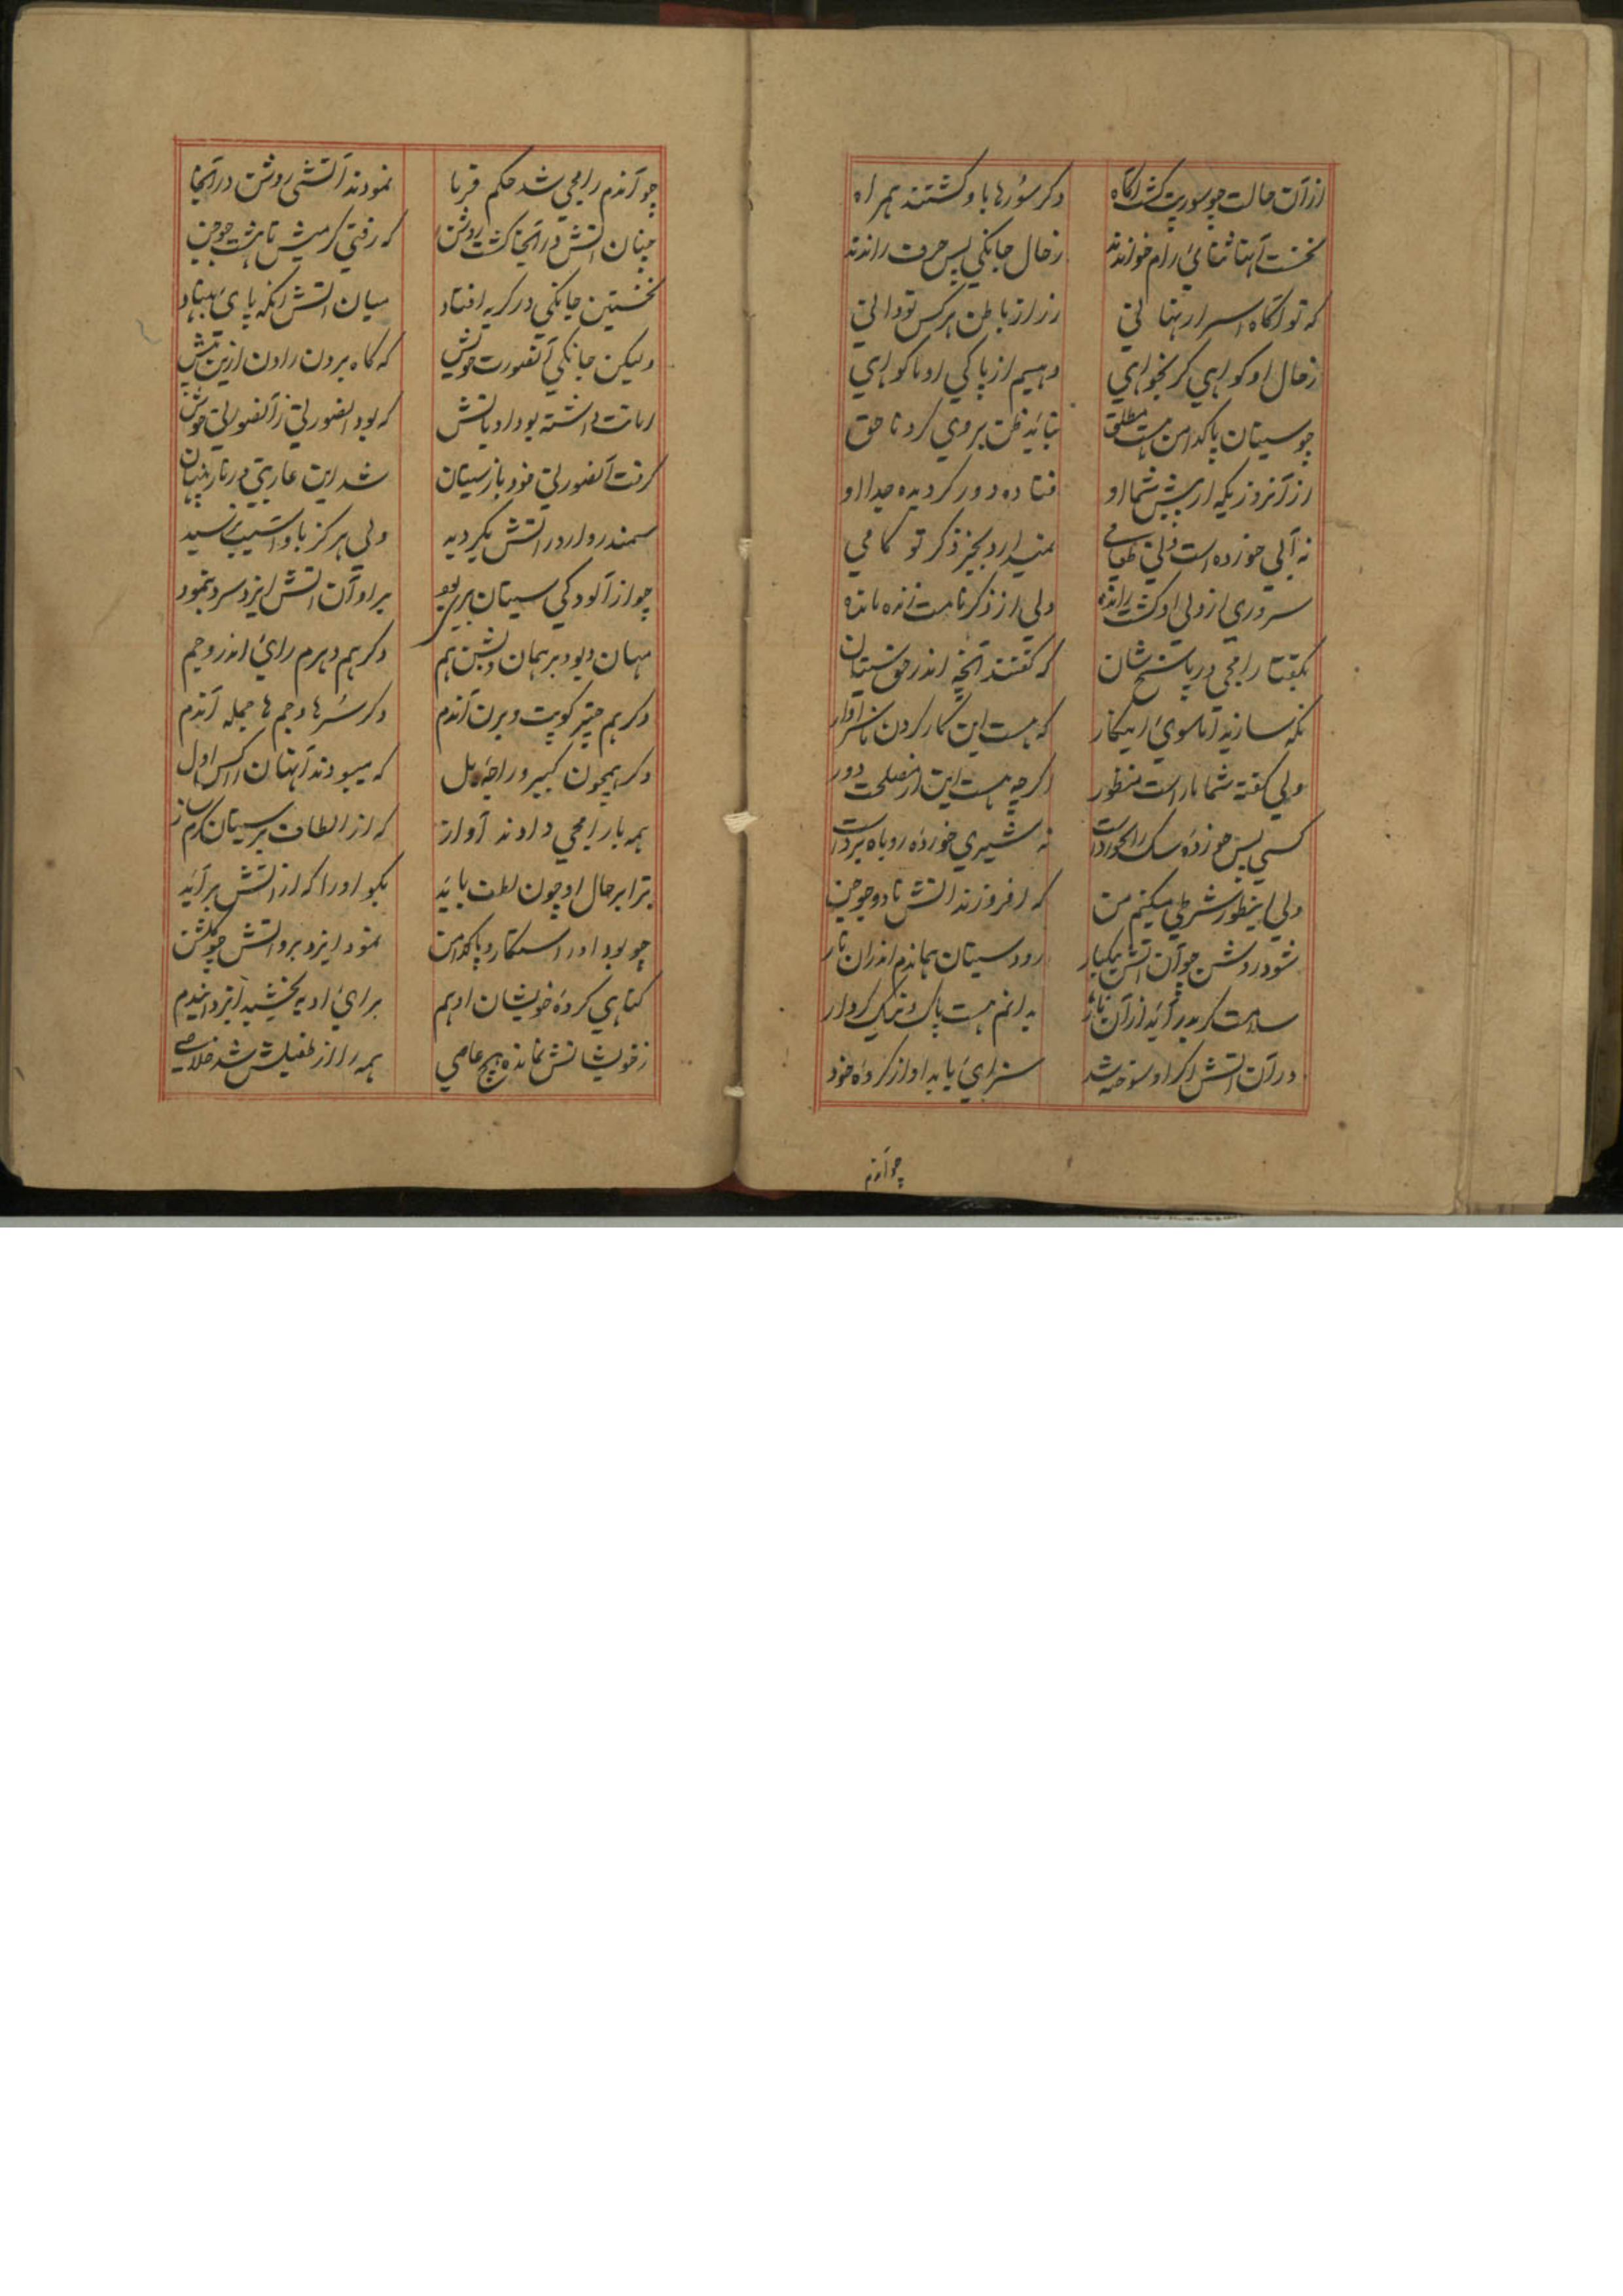 ازآن حالت چو سورپت کشت آکاه دکر سُورها باو کشتند همراه
نخست آنها ثنائ رام خواندند زحال جانکي پس حرف راندند
که تو آکاه اسرار نهاني زراز باطن هر کس تو داني
زحال او کواهي کر بخواهي دهیم از پاکي او ما کواهي
چو سیتان پاکدامن هست مطلق نباید ظن بروي کرد ناحق
ازآنروزیکه از پیش شما او فتاده دور کردیده جدا او
نه آبي خورده است و ني طعامي نمیدارد بجز ذکر تو کامي
سروري از ولي او کشت رانده ولي از ذکر نامت زنده مانده
بکفتا رامجي در پاسخ شان که کفتند آنچه اندر حق سیتان
نکه سازید اما سوئ اینکار که هست این کار کردن ناسزاوار
ولي کفته شما را است منظور اکرچه هست این از مصلحت دور
کسي پس خوردهٔ سک را نخوردست نه شیري خوردهٔ روباه بردست
ولي اینطور شرطي میکنم من که افروزند آتش تا دو جوجن
شود روشن چو آن آتش بیکبار رود سیتان بماندم اندران نار
سلامت کر بدر آید ازآن نار بدانم هست پاک و نیک کردار
درآن آتش اکر او سوخته شد سزائ یابد او از کردهٔ خود
چو آندم
چو آندم رامجي شد حکم فرما نمودند آتشي روشن درآنجا
چنان آتش درآنجا کشت روشن که رفتي کرمیش تا هشت جوجن
نخستین جانکي در کریه افتاد میان آتش آنکه پائ بنهاد
ولیکن جانکي آنصورت خویش که کاه بردن راون ازین پیش
امانت داشته بود او بآتش که بود اینصورتي زآنصورتي خوش
کرفت آنصورتي خود باز سیتان شد این عاریتي در نار پنهان
سمندروار در آتش بکردید ولي هرکز باو آسیب نرسید
چو از آلودکي سیتان بري بود براو آن آتش ایزد سرد بنمود
مهان دیو و برهمان و بشن هم دکر هم دهرم رائ اندر و جم
دکر هم چتر کوپت و برن آندم دکر سُرها و جم ها جمله آندم
دکر همچون کبیر و راجهٔ بل که میبودند آنها ن اکس اول
همه با رامجي دادند آواز که از الطاف بر سیتان کرم ساز
ترا بر حال او چون لطف باید بکو او را که از آتش برآید
چو بود او راستکار و پاکدامن نمود ایزد برو آتش چو کلشن
کناهي کردهٔ خویشان او هم برائ او به بخشید ایزد آندم
زخویشانش نمانده هیچ عاصي همه را از طفیلش شد خلاصي